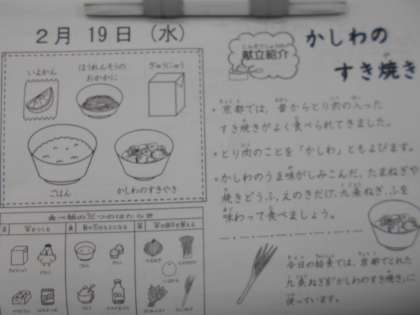 2月 19日 (水)
こんだてしょうかい
献立紹介
かしわの
すき焼き
いよかん
ほうれんそうの
おかかに
ぎゅうにゅう
ごはん
かしわのすきやき
・京都では、昔からとり肉の入った
すき焼きがよく食べられてきました。
・とり肉のことを「かしわ」ともよびます。
・かしわのうま味がしみこんだ、たまねぎや
焼きどうふ、えのきだけ、九条ねぎ、ふを
味わって食べましょう。
今日の給食では、京都でとれた
九条ねぎを「かしわのすき焼き」に
使っています。